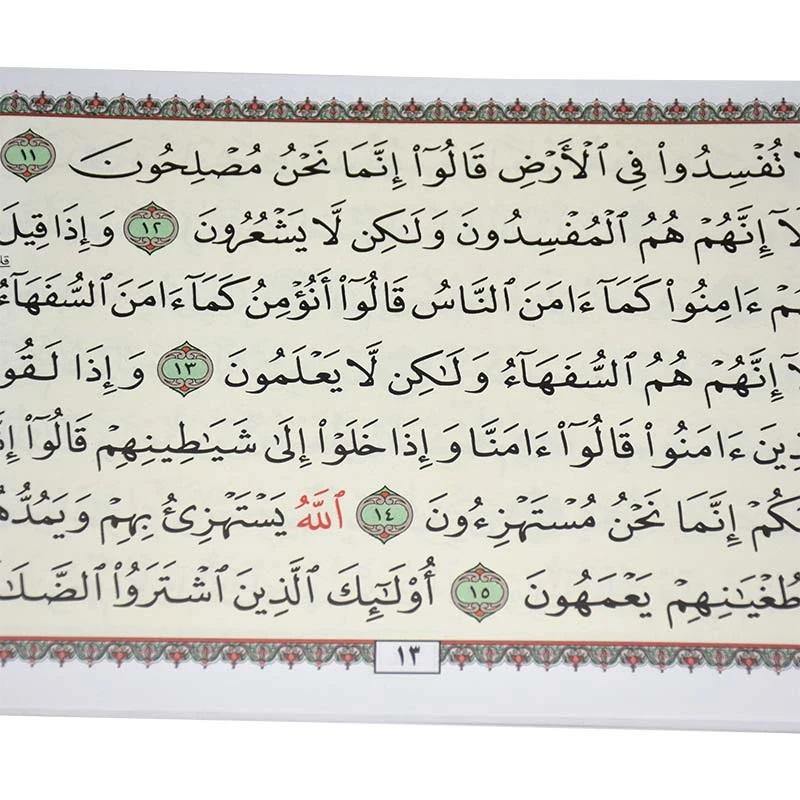 تُفْسِدُوا۟ فِى ٱلْأَرْضِ قَالُوٓا۟ إِنَّمَا نَحْنُ مُصْلِحُونَ ١١
إِنَّهُمْ هُمُ ٱلْمُفْسِدُونَ وَلَـٰكِن لَّا يَشْعُرُونَ ١٢ وَإِذَا قِيلَ
ءَامِنُوا۟ كَمَآ ءَامَنَ ٱلنَّاسُ قَالُوٓا۟ أَنُؤْمِنُ كَمَآ ءَامَنَ ٱلسُّفَهَآءُ
إِنَّهُمْ هُمُ ٱلسُّفَهَآءُ وَلَـٰكِن لَّا يَعْلَمُونَ ١٣ وَإِذَا لَقُو
ءَامَنُوا۟ قَالُوٓا۟ ءَامَنَّا وَإِذَا خَلَوْا۟ إِلَىٰ شَيَـٰطِينِهِمْ قَالُوٓا۟
إِنَّمَا نَحْنُ مُسْتَهْزِءُونَ ١٤ ٱللَّهُ يَسْتَهْزِئُ بِهِمْ وَيَمُدُّهُ
طُغْيَـٰنِهِمْ يَعْمَهُونَ ١٥ أُو۟لَـٰٓئِكَ ٱلَّذِينَ ٱشْتَرَوُا۟ ٱلضَّلَـٰ
١٣